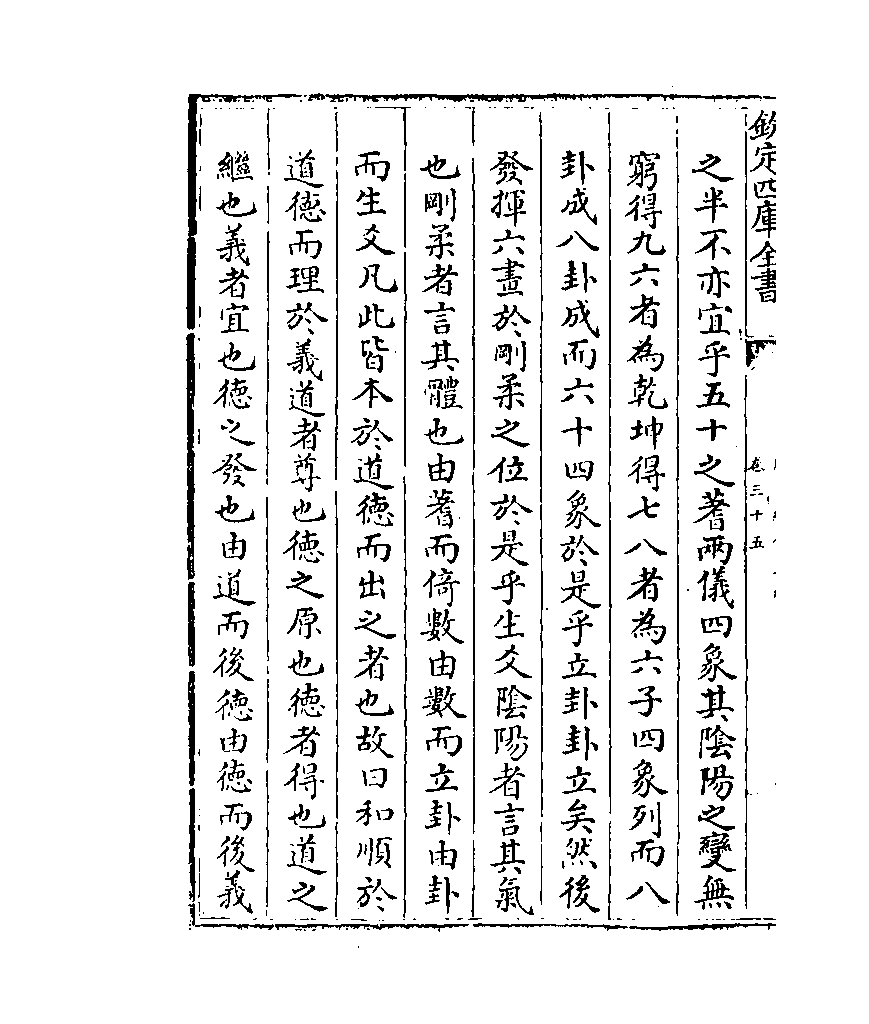 欽定四庫全書
卷三十五
之半不亦宜乎五十之蓍兩儀四象其陰陽之變無
窮得九六者為乾坤得七八者為六子四象列而八
卦成八卦成而六十四象於是乎立卦卦立矣然後
發揮六畫於剛柔之位於是乎生爻陰陽者言其氣
也剛柔者言其體也由蓍而倚數由數而立卦由卦
而生爻凡此皆本於道德而出之者也故曰和順於
道德而理於義道者尊也德之原也德者得也道之
繼也義者宜也德之發也由道而後德由德而後義